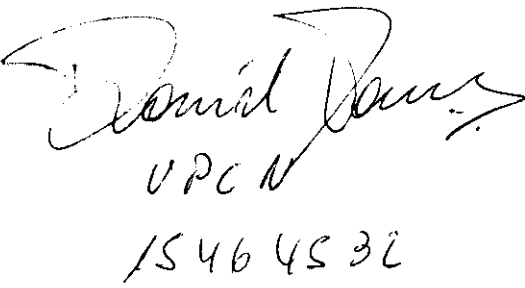 Daniel
UPCN
15464532